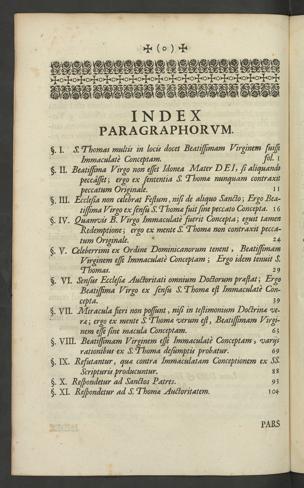 ✠ ( o ) ✠
INDEX
PARAGRAPHORVM.
§. I. S. Thomas multis in locis docet Beatissimam Virginem fuisse
Immaculatè Conceptam. fol. 1
§. II. Beatissima Virgo non esset Idonea Mater DEI, si aliquando
peccâsset; ergo ex sententia S. Thoma nunquam contraxit
peccatum Originale. 11
§. III. Ecclesia non celebrat Festum, nisi de aliquo Sancto; Ergo Bea-
tissima Virgo ex sensu S. Thoma fuit sine peccato Concepta. 16
§. IV. Quamvis B. Virgo Immaculatè fuerit Concepta; eguit tamen
Redemptione; ergo ex mente S. Thoma non contraxit pecca-
tum Originale. 24
§. V. Celeberrimi ex Ordine Dominicanorum tenent, Beatissimam
Virginem esse Immaculatè Conceptam; Ergo idem tenuit S.
Thomas. 29
§. VI. Sensus Ecclesia Auctoritati omnium Doctorum prastat; Ergo
Beatissima Virgo ex sensu S. Thoma est Immaculatè Con-
cepta. 39
§. VII. Miracula fieri non possunt, nisi in testimonium Doctrina ve-
ra; ergo ex mente S. Thoma verum est, Beatissimam Virgi-
nem esse sine macula Conceptam. 63
§. VIII. Beatissimam Virginem esse Immaculatè Conceptam, varijs
rationibus ex S. Thoma desumptis probatur. 69
§. IX. Refutantur, qua contra Immaculatam Conceptionem ex SS.
Scripturis producuntur. 88
§. X. Respondetur ad Sanctos Patres. 95
§. XI. Respondetur ad S. Thoma Auctoritatem. 104
PARS